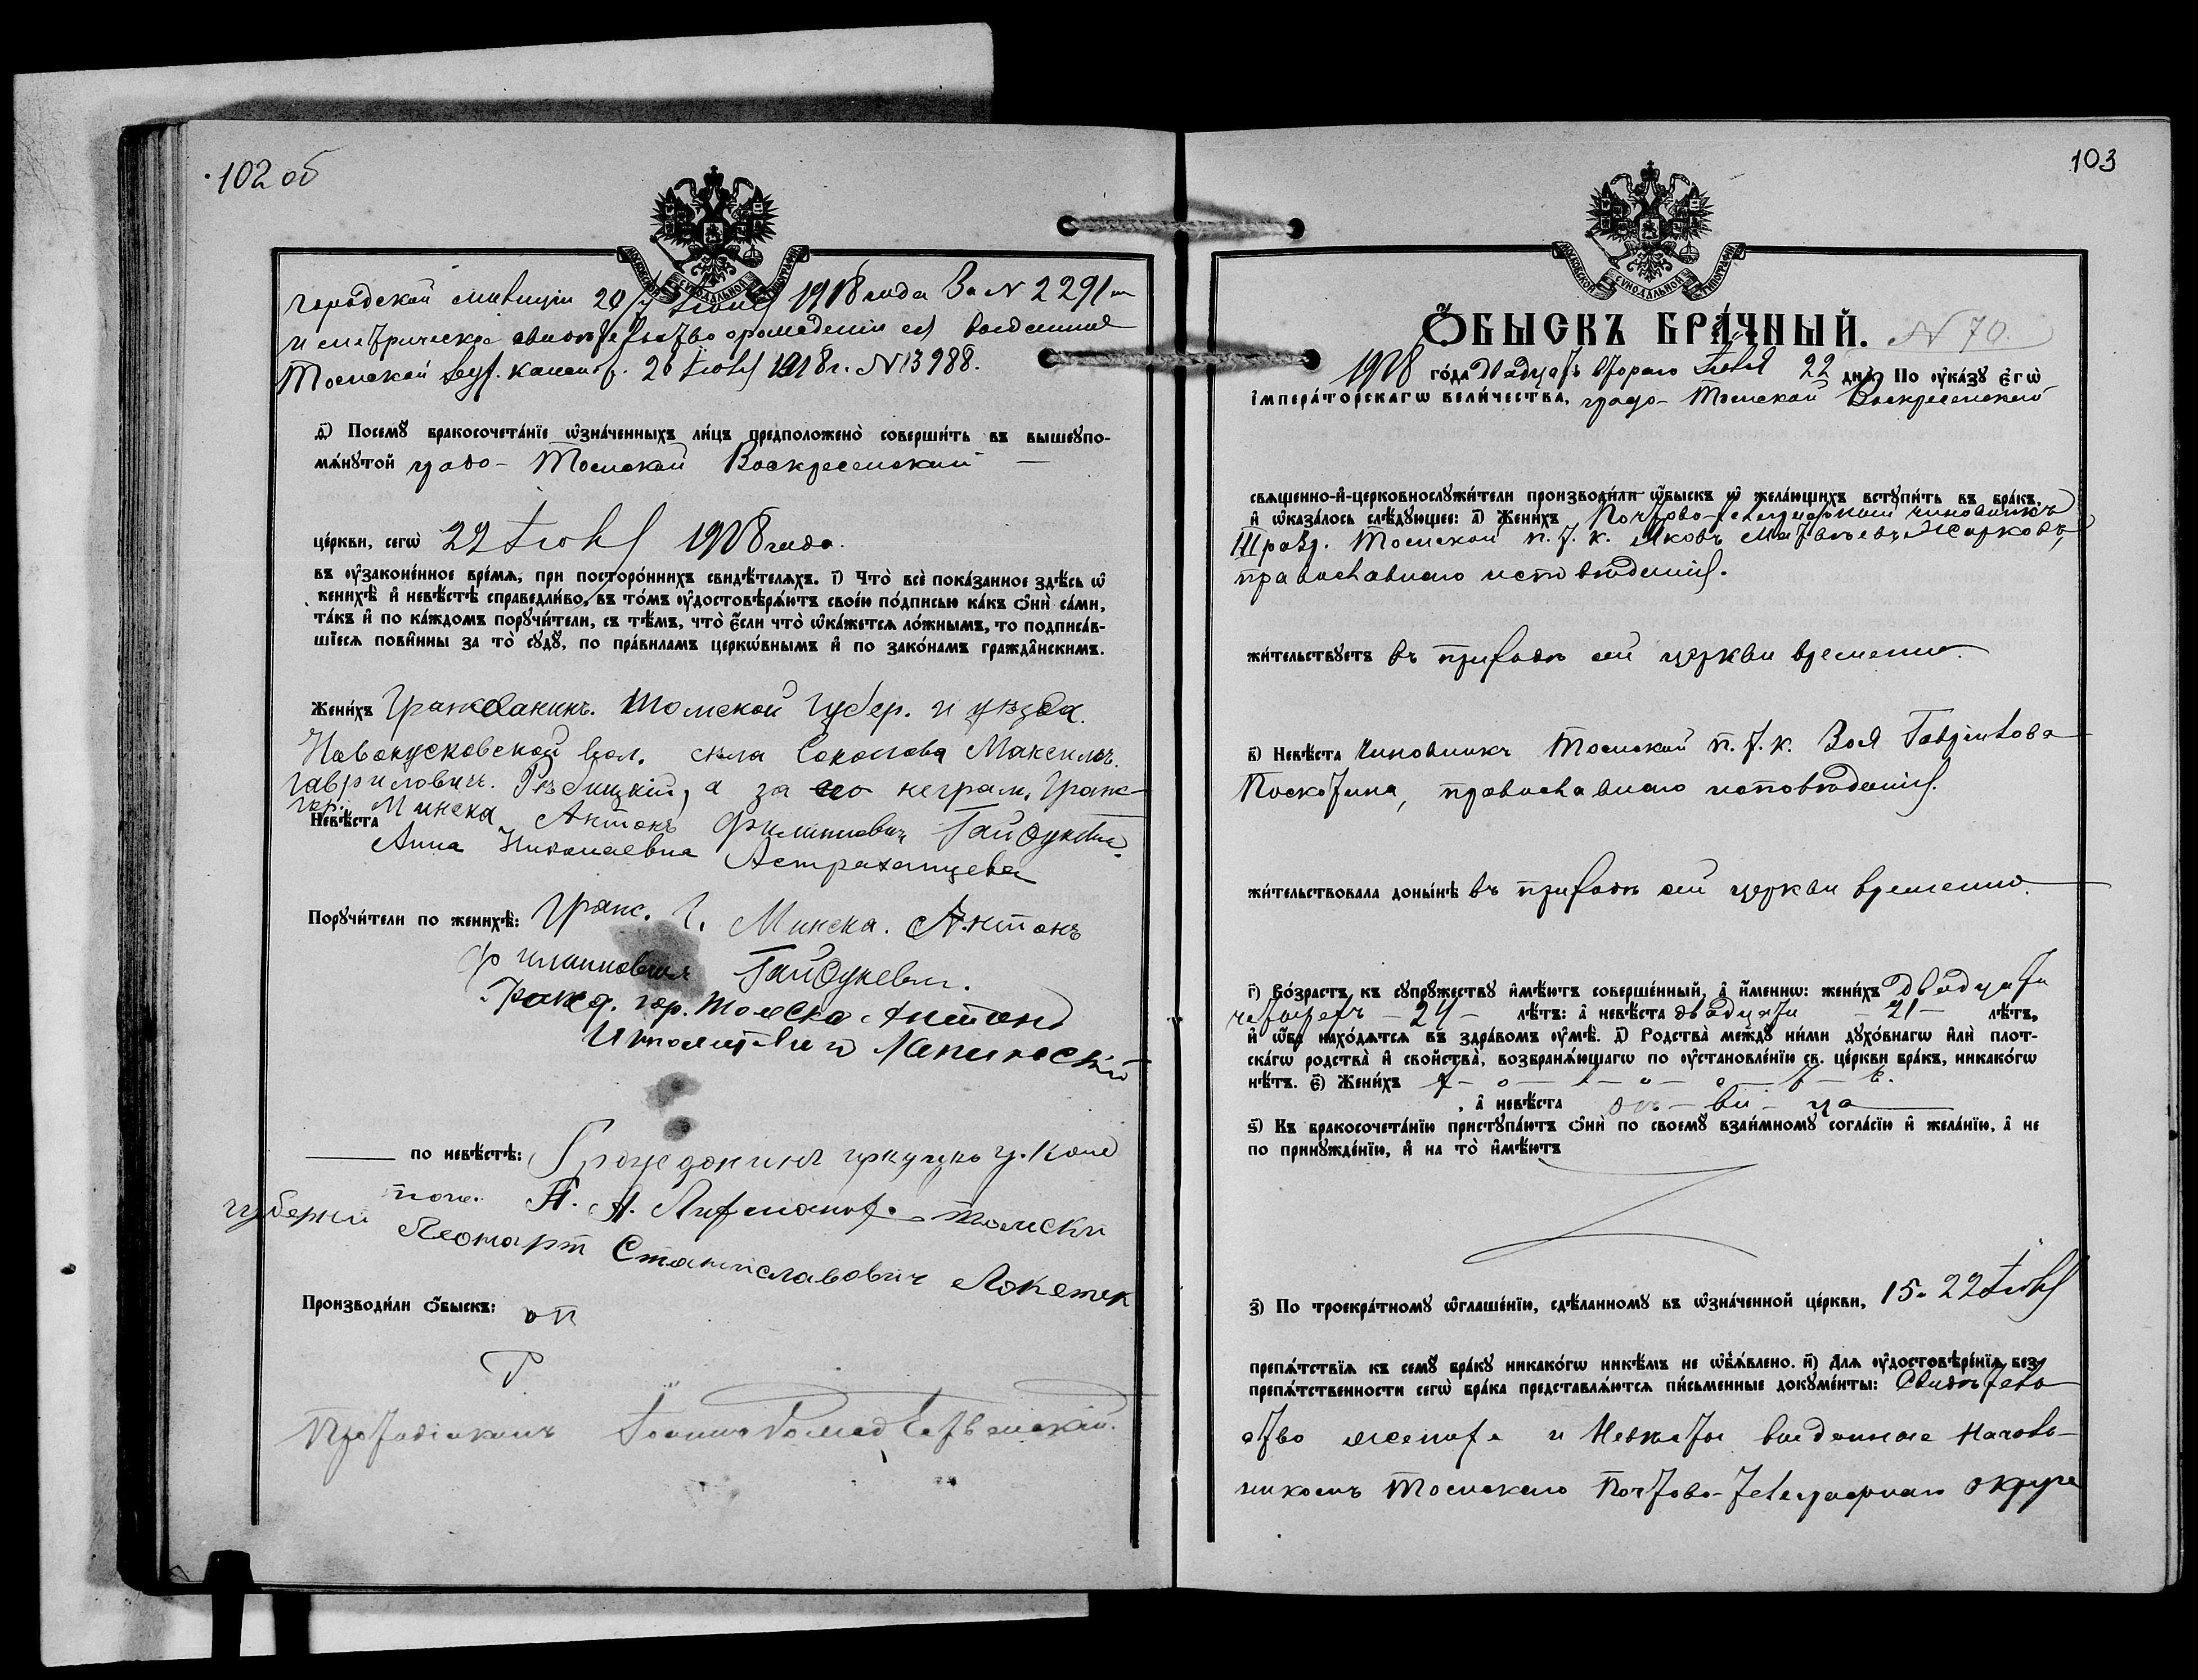 102 об
МОСКОВСКОЙ СѴНОДАЛЬНОЙ ТИПОГРАФІИ
городской милиціи 20/7 Іюня 1918 года за № 2291
и метрическое свидѣтельство о рожденіи ея выданное
Томской дух. консист. 26 Іюня 1918 г. № 13988.
Посемꙋ̀ бракосочета́нїе ѡ҆зна́ченныхъ ли́цъ предположено̀ соверши́ть въ вышеꙋпо-
мѧ́нꙋтой градо-Томской Воскресенской
це́ркви, сегѡ̀ 22 Іюля 1918 года.
въ ᲂу҆зако́ненное вре́мѧ, при посторо́ннихъ свидѣ́телѧхъ. і҃) Что̀ всѐ пока́занное здѣ́сь ѡ҆
женихѣ̀ и҆ невѣ́стѣ справедли́во, въ то́мъ ᲂу҆достовѣрѧ́ютъ свое́ю по́дписью ка́къ ѻ҆нѝ са́ми,
та́къ и҆ по ка́ждомъ порꙋчи́тели, съ тѣ́мъ, что̀ є҆́сли что̀ ѡ҆ка́жетсѧ ло́жнымъ, то подписа́в-
шїесѧ пови́нны за то̀ сꙋдꙋ̀, по пра́виламъ церкѡ́внымъ и҆ по зако́намъ гражда̑нскимъ.
Жени́хъ Гражданинъ. Томской Губер. и уѣзда.
Новокусковской вол. села Соколова Максимъ.
Гавриловичъ. а за его неграм. Граж-
гор. Минска Антонъ Филипповичъ Гайдукевич.
Невѣ́ста
Анна Николаевна Астраханцева
Порꙋчи́тели по женихѣ̀: Граж. Г. Минска. Антонъ
Филипповичъ Гайдукевич.
Гражд. гор. Томска Антонъ
Иполитович Лапинскій
по невѣ́стѣ: Гражданинъ
А. Томски
губерни Леонарт Станиславович Локетек
Производи́ли ѻ҆́быскъ: оп
Р
Протодіаконъ Іоаннъ
103
МОСКОВСКОЙ СѴНОДАЛЬНОЙ ТИПОГРАФІИ
Ѻ҆́БЫСКЪ БРА́ЧНЫЙ. № 70.
1918 го́да двадцать второго Іюля 22 днѧ̀. По ᲂу҆ка́зꙋ є҆гѡ̀
і҆мпера́торскагѡ вели́чества, градо-Томской Воскресенской
свѧще́нно-и҆-церковнослꙋжи́тели производи́ли ѻ҆́быскъ ѡ҆ жела́ющихъ встꙋпи́ть въ бра́къ,
и҆ ѡ҆каза́лось слѣ́дꙋющее: а҃) Жени́хъ Почтово-телеграфный чиновникъ
III разр. Томской п. т. к. Яковъ Матвѣевъ Жарковъ,
православнаго исповѣданія.
жи́тельствꙋетъ въ приходѣ сей церкви временно.
в҃) Невѣ́ста Чиновникъ Томской п. т. к. Зоя Гаврилова
Поскотина, православнаго исповѣданія.
жи́тельствовала доны́нѣ въ приходѣ сей церкви временно.
г҃) Во́зрастъ къ сꙋпрꙋ́жествꙋ и҆мѣ́ютъ соверше́нный, а҆ и҆́меннѡ: жени́хъ двадцати
четырехъ — 24 — лѣ́тъ: а҆ невѣ́ста двадцати — 21 — лѣ́тъ,
и҆ ѻ҆́ба нахо́дѧтсѧ въ здра́вомъ ᲂу҆мѣ̀. д҃) Родства̀ междꙋ̀ ни́ми дꙋхо́внагѡ и҆лѝ плот-
ска́гѡ родства̀ и҆ сво́йства, возбранѧ́ющагѡ по ᲂу҆становле́нїю св. це́ркви бра́къ, никако́гѡ
нѣ́тъ. є҃) Жени́хъ х — о — л — о — с — т — ъ.
, а҆ невѣ́ста дѣ — ви — ца
ѕ҃) Къ бракосочета́нїю пристꙋпа́ютъ ѻ҆нѝ по своемꙋ̀ взаи́мномꙋ согла́сїю и҆ жела́нїю, а҆ не
по принꙋжде́нїю, и҆ на то̀ и҆мѣ́ютъ
з҃) По троекра́тномꙋ ѡ҆глаше́нїи, сдѣ́ланномꙋ въ ѡ҆зна́ченной це́ркви, 15. 22 Іюля
препѧ́тствїѧ къ семꙋ̀ бра́кꙋ никако́гѡ никѣ́мъ не ѡ҆б̾ѧ́влено. и҃) Длѧ ᲂу҆достовѣре́нїѧ без-
препѧ́тственности сегѡ̀ бра́ка представлѧ́ютсѧ пи́сьменные докꙋме́нты: Свидѣтель-
ство жениха и Невѣсты выданное Началь-
никомъ Томскаго Почтово-Телеграфнаго округа